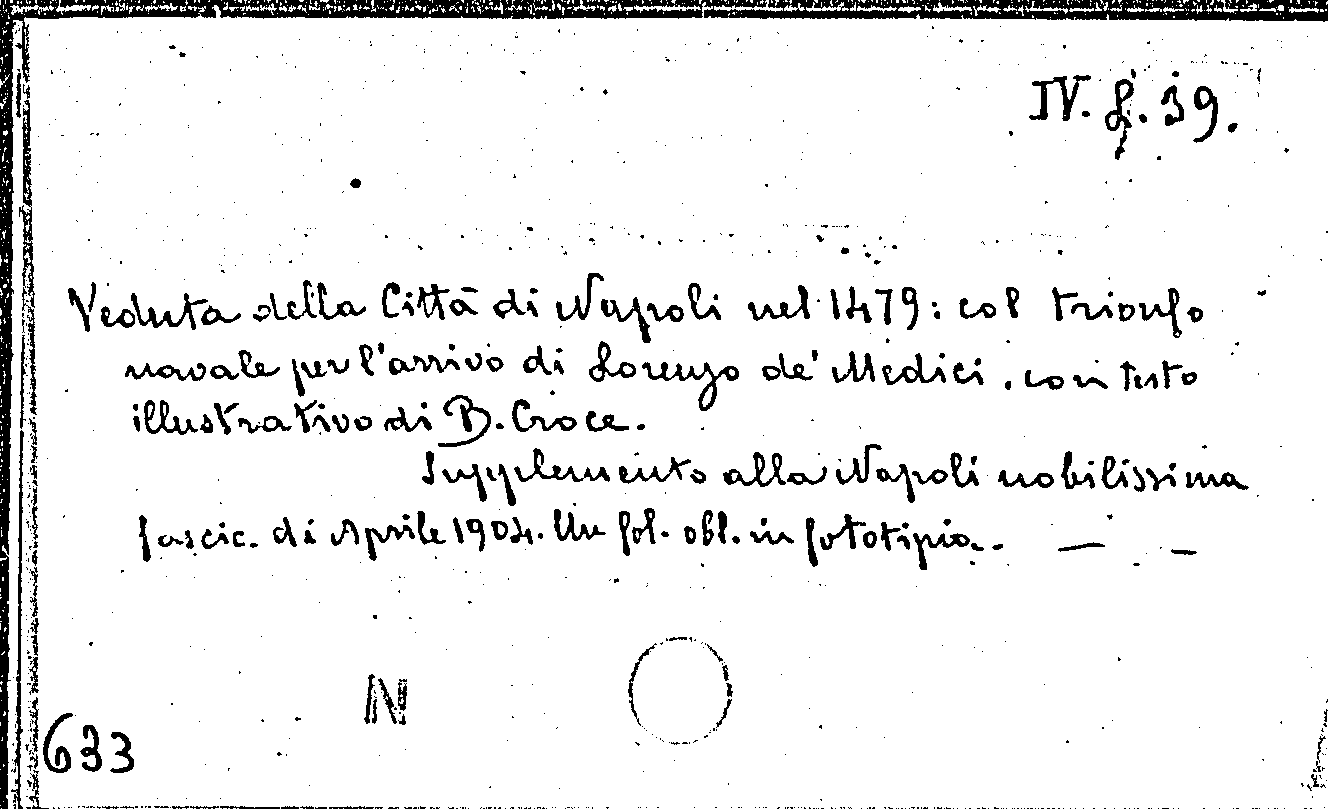 IV. f. 39.
Veduta della Città di Napoli nel 1479: col trionfo
navale per l'arrivo di Lorenzo de' Medici. con testo
illustrativo di B. Croce.
Supplemento alla Napoli nobilissima
fascic. di Aprile 1904. Un fol. obl. in fototipia. — —
N
633